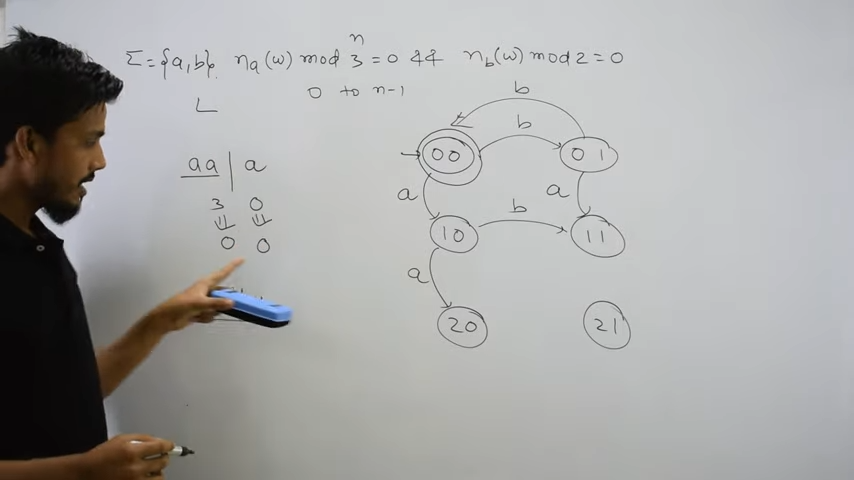 n
Σ={a,b}. na(w) mod 3 = 0 && nb(w) mod 2 = 0
L 0 to n-1
aa | a
3 0
⇓ ⇓
0 0
b
b
00 01
a a
b
10 11
a
20 21